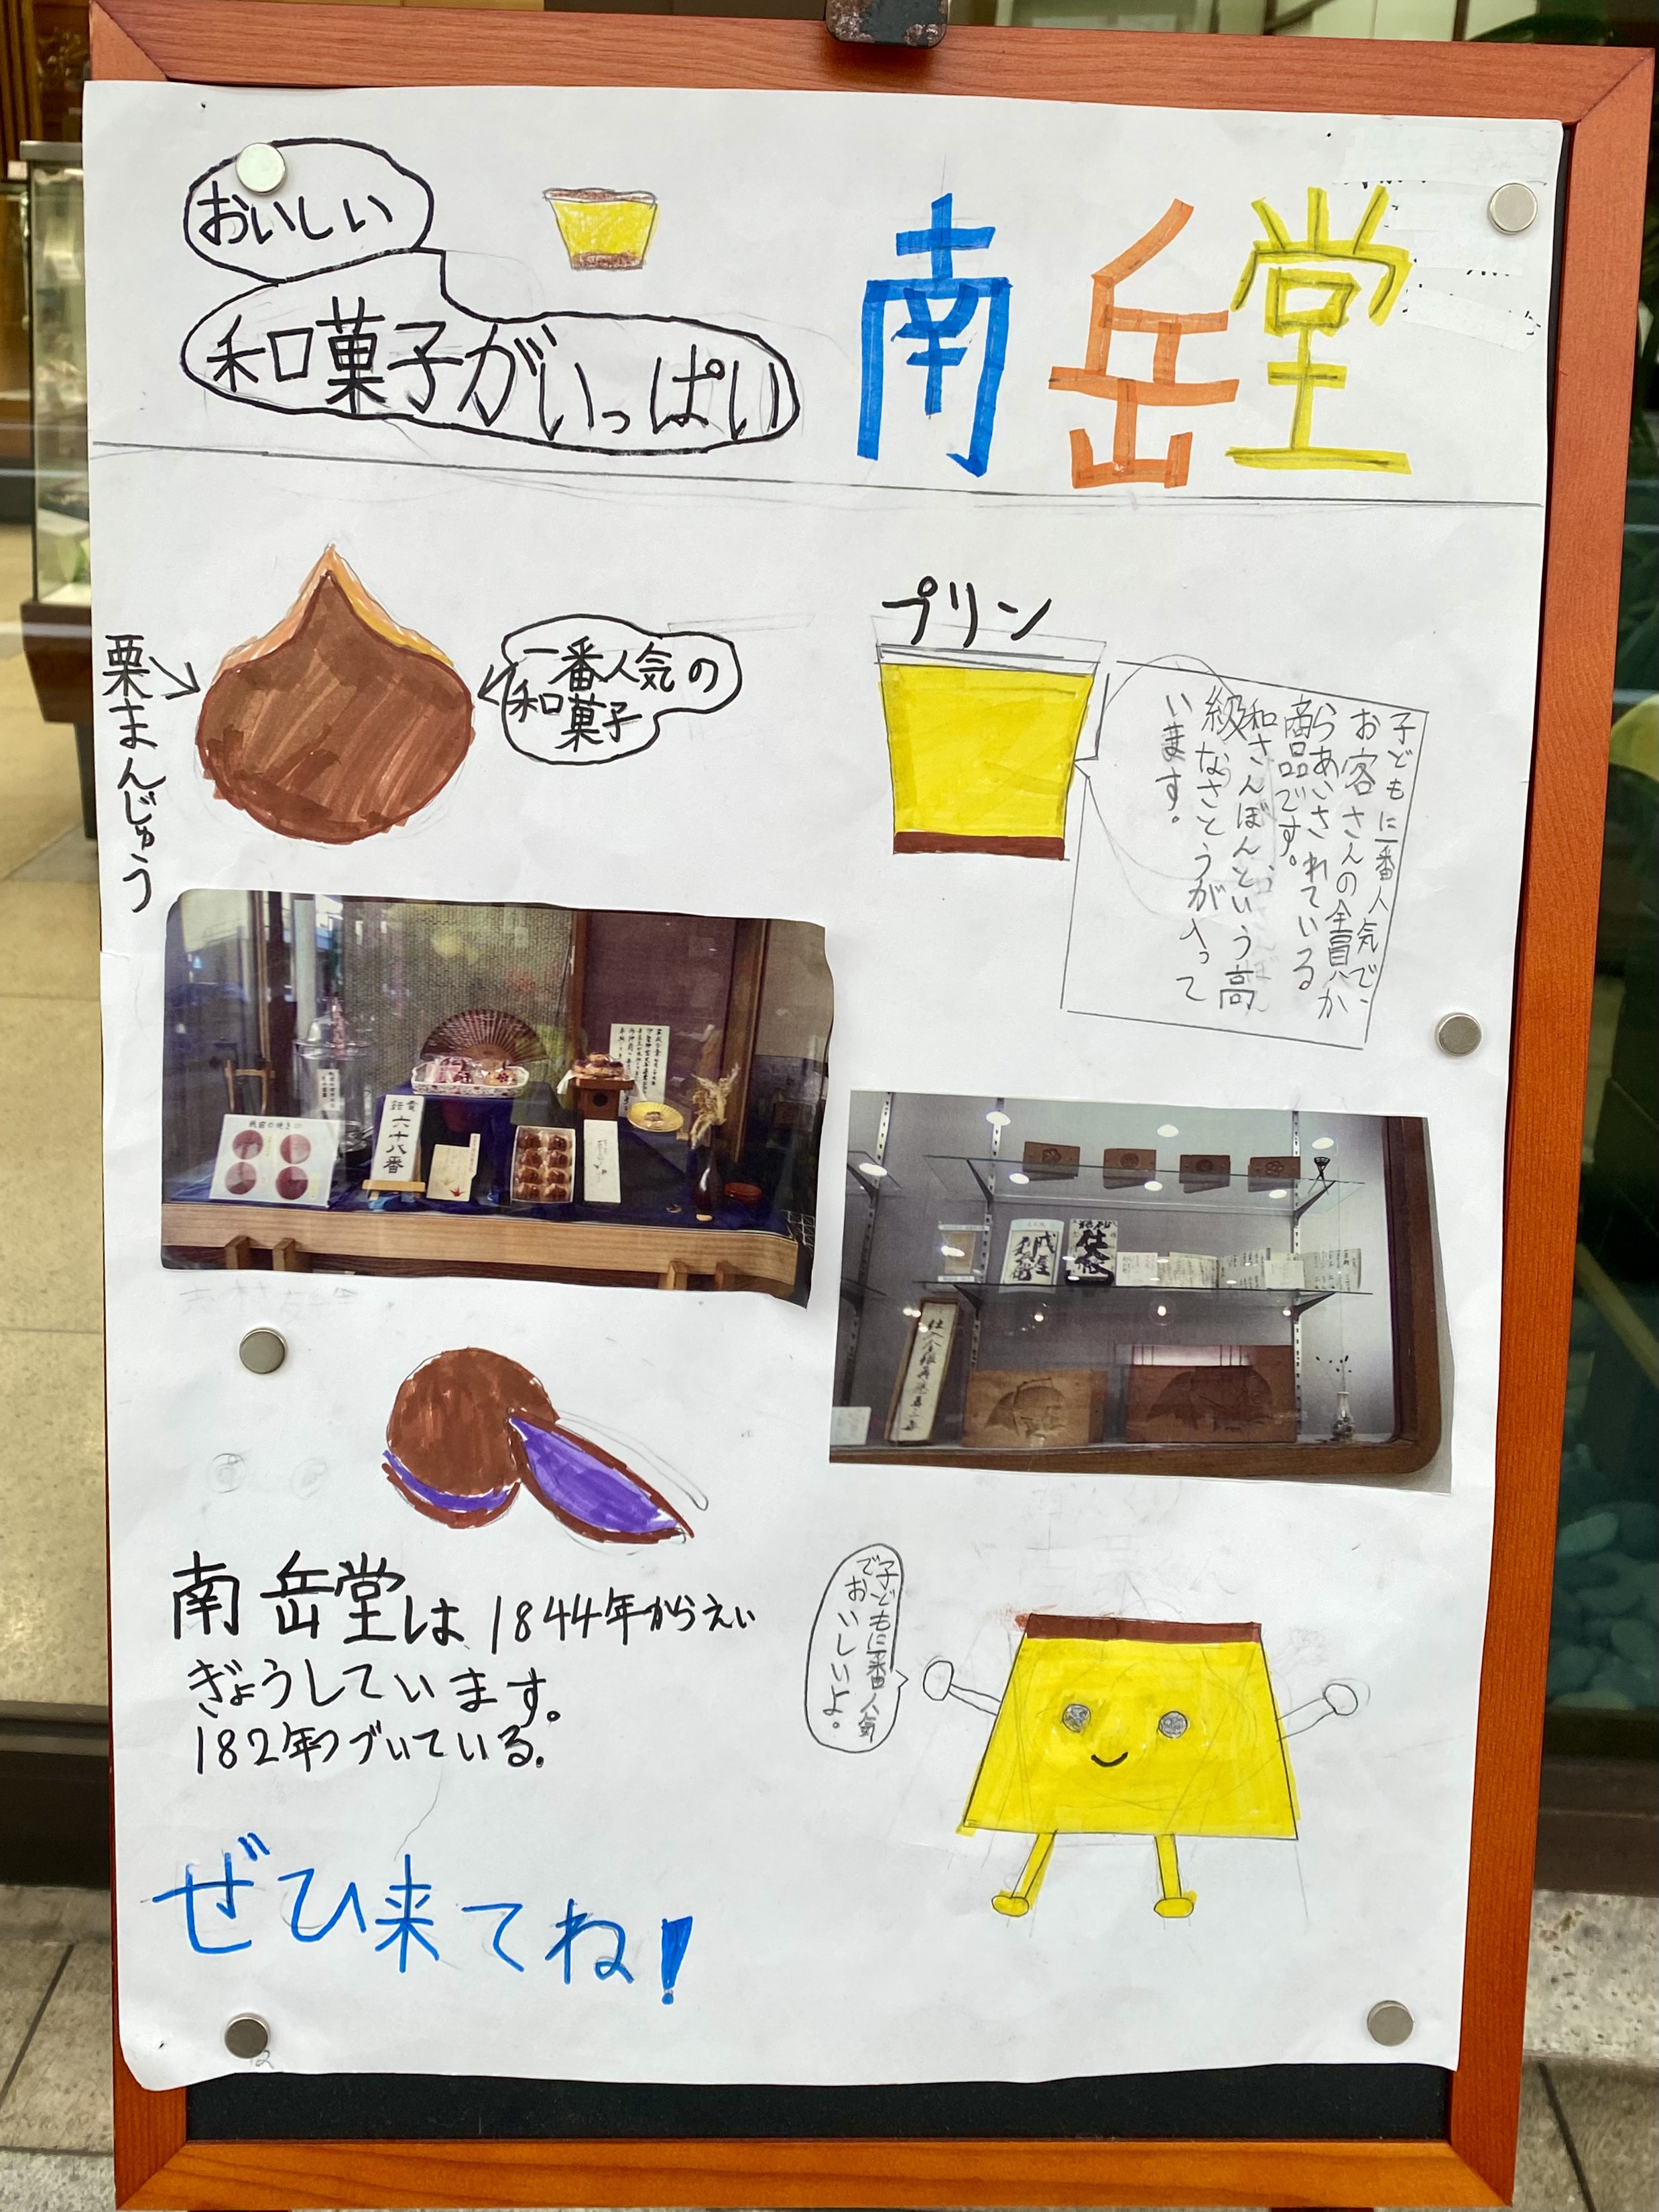 おいしい
和菓子がいっぱい
南岳堂
栗まんじゅう
一番人気の
和菓子
プリン
子どもに一番人気で、
お客さんの全員か
らあいされている
商品です。
和さんぼんという高
級なさとうが入って
います。
新電
六十八番
南岳堂は1844年からえい
ぎょうしています。
182年つづいている。
子どもに一番人気
でおいしいよ。
ぜひ来てね!